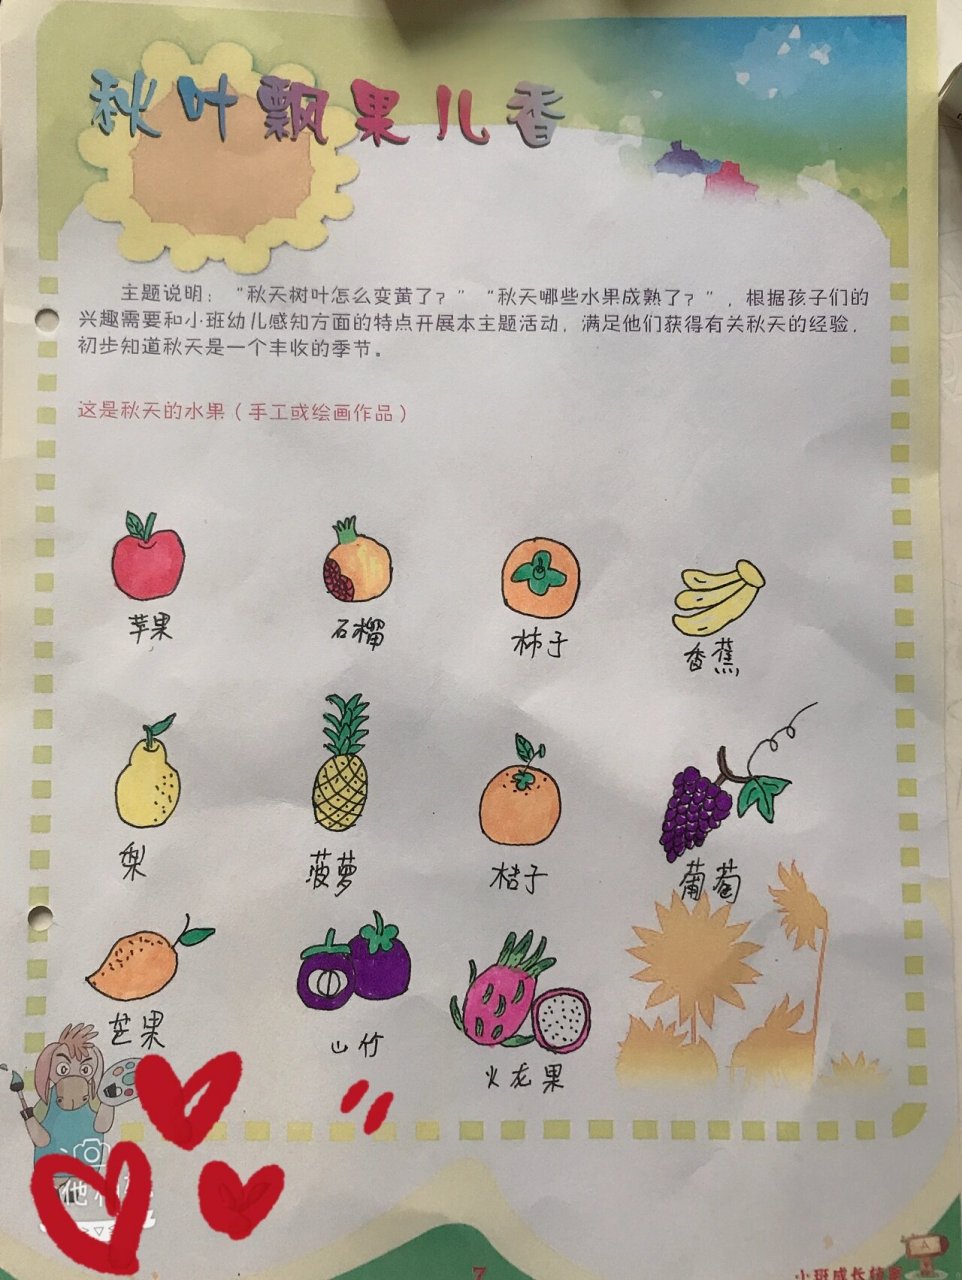 秋叶飘果儿香
主题说明：“秋天树叶怎么变黄了？”“秋天哪些水果成熟了？”，根据孩子们的
兴趣需要和小班幼儿感知方面的特点开展本主题活动，满足他们获得有关秋天的经验，
初步知道秋天是一个丰收的季节。
这是秋天的水果（手工或绘画作品）
苹果
石榴
柿子
香蕉
梨
菠萝
桔子
葡萄
芒果
山竹
火龙果
7
小班成长